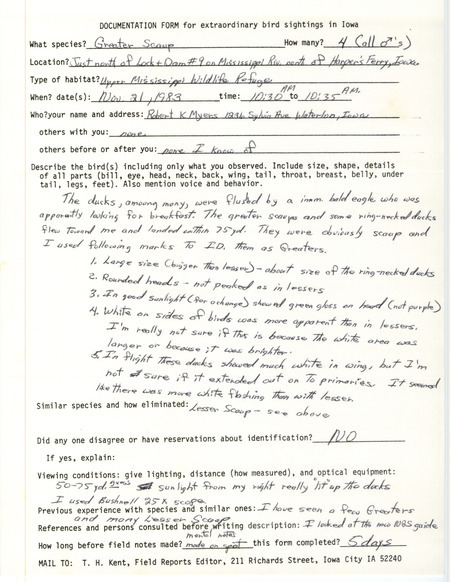 DOCUMENTATION FORM for extraordinary bird sightings in Iowa
What species? Greater Scaup How many? 4 (all ♂'s)
Location? Just north of Lock + Dam #9 on Mississippi Riv. north of Harper's Ferry, Iowa
Type of habitat? Upper Mississippi Wildlife Refuge
When? date(s): Nov. 21, 1983 time: 10:30 AM to 10:35 A.M.
Who? your name and address: Robert K Myers Sylvia Ave Waterloo, Iowa
others with you: none
others before or after you: none I know of
Describe the bird(s) including only what you observed. Include size, shape, details
of all parts (bill, eye, head, neck, back, wing, tail, throat, breast, belly, under
tail, legs, feet). Also mention voice and behavior.
The ducks, among many, were flushed by a imm. bald eagle who was
apparently looking for breakfast. The greater scaups and some ring-necked ducks
flew toward me and landed within 75 yd. They were obviously scaup and
I used following marks To I.D. them as Greaters.
1. Large size (bigger than lesser) - about size of the ring-necked ducks
2. Rounded heads - not peaked as in lessers
3. In good sunlight (for a change) showed green gloss on head (not purple)
4. White on sides of birds was more apparent then in lessers.
I'm really not sure if this is because the white area was
larger or because it was brighter.
5. In flight these ducks showed much white in wing, but I'm
not sure if it extended out on To primaries. It seemed
like there was more white flashing then with lesser.
Similar species and how eliminated: Lesser Scaup - see above
Did any one disagree or have reservations about identification? NO
If yes, explain:
Viewing conditions: give lighting, distance (how measured), and optical equipment:
50-75 yd. sunlight from my right really "lit" up the ducks
I used Bushnell 25X scope
Previous experience with species and similar ones: I have seen a few Greaters
and many Lesser Scaup
References and persons consulted before writing description: I looked at the new NGS guide
How long before field notes made? mental notes made on spot this form completed? 5 days
MAIL TO: T. H. Kent, Field Reports Editor, 211 Richards Street, Iowa City IA 52240